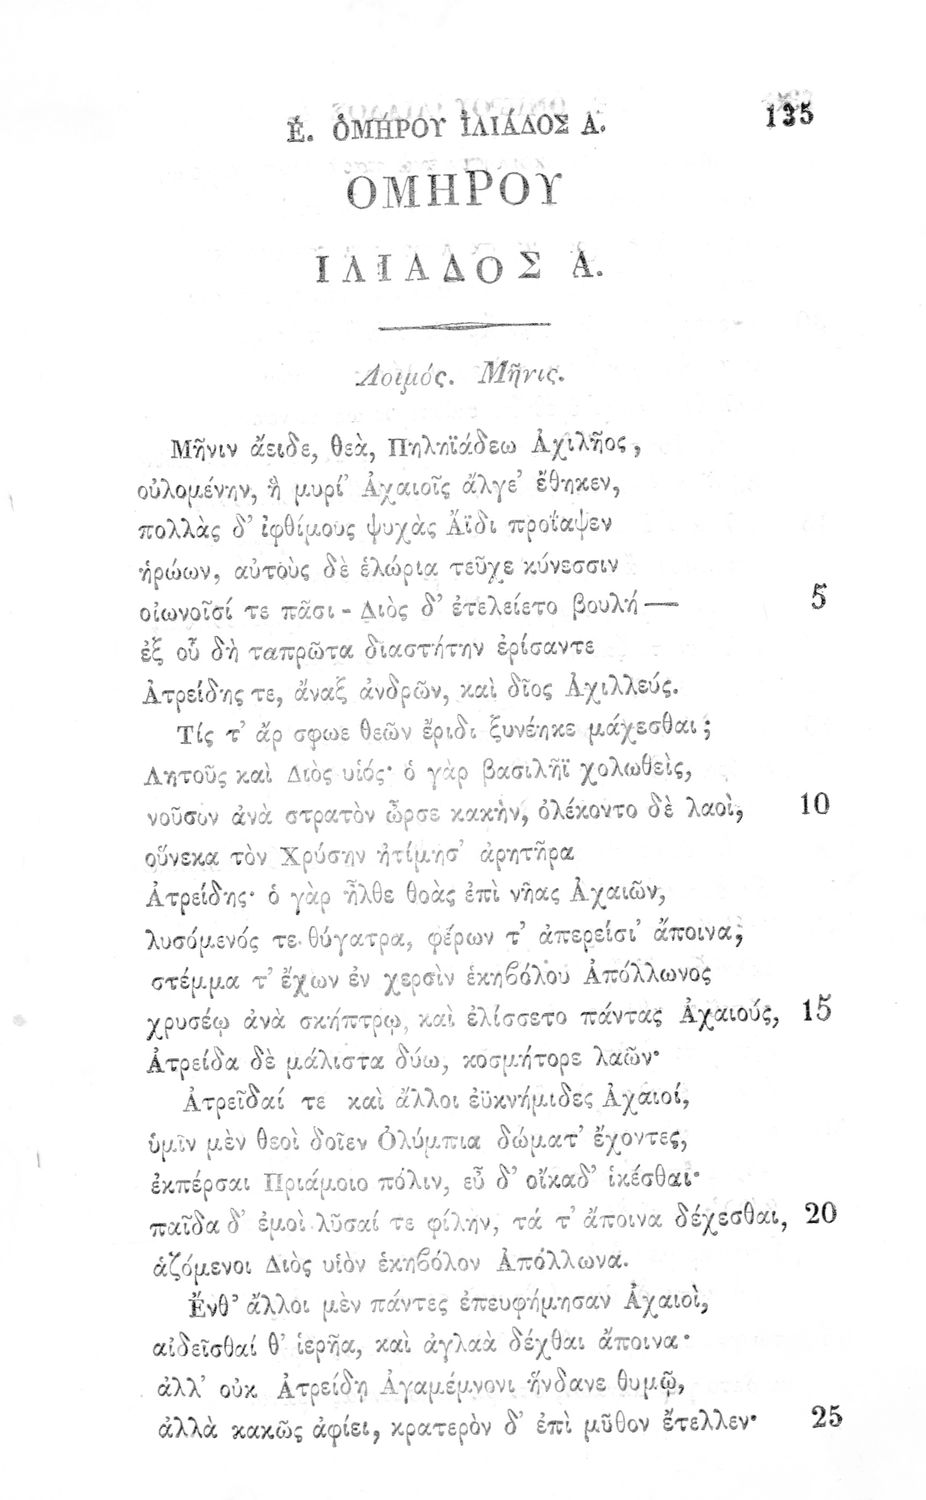 Ἐ. ὉΜΗΡΟΥ ἸΛΙΆΔΟΣ Α. 135
ΟΜΗΡΟΥ
ΙΛΙΑΔΟΣ Α.
Λοιμός. Μῆνις.
Μῆνιν ἄειδε, θεὰ, Πηληϊάδεω Ἀχιλῆος,
οὐλομένην, ἣ μυρί’ Ἀχαιοῖς ἄλγε’ ἔθηκεν,
πολλὰς δ’ ἰφθίμους ψυχὰς Ἄϊδι προΐαψεν
ἡρώων, αὐτοὺς δὲ ἑλώρια τεῦχε κύνεσσιν
οἰωνοῖσί τε πᾶσι - Διὸς δ’ ἐτελείετο βουλή — 5
ἐξ οὗ δὴ ταπρῶτα διαστήτην ἐρίσαντε
Ἀτρείδης τε, ἄναξ ἀνδρῶν, καὶ δῖος Ἀχιλλεύς.
Τίς τ’ ἄρ σφωε θεῶν ἔριδι ξυνέηκε μάχεσθαι;
Λητοῦς καὶ Διὸς υἱός· ὁ γὰρ βασιλῆϊ χολωθεὶς,
νοῦσον ἀνὰ στρατὸν ὦρσε κακὴν, ὀλέκοντο δὲ λαοὶ, 10
οὕνεκα τὸν Χρύσην ἠτίμησ’ ἀρητῆρα
Ἀτρείδης· ὁ γὰρ ἦλθε θοὰς ἐπὶ νῆας Ἀχαιῶν,
λυσόμενός τε θύγατρα, φέρων τ’ ἀπερείσι’ ἄποινα,
στέμμα τ’ ἔχων ἐν χερσὶν ἑκηβόλου Ἀπόλλωνος
χρυσέῳ ἀνὰ σκήπτρῳ, καὶ ἐλίσσετο πάντας Ἀχαιούς, 15
Ἀτρείδα δὲ μάλιστα δύω, κοσμήτορε λαῶν·
Ἀτρεῖδαί τε καὶ ἄλλοι ἐϋκνήμιδες Ἀχαιοί,
ὑμῖν μὲν θεοὶ δοῖεν Ὀλύμπια δώματ’ ἔχοντες,
ἐκπέρσαι Πριάμοιο πόλιν, εὖ δ’ οἴκαδ’ ἱκέσθαι·
παῖδα δ’ ἐμοὶ λῦσαί τε φίλην, τά τ’ ἄποινα δέχεσθαι, 20
ἁζόμενοι Διὸς υἱὸν ἑκηβόλον Ἀπόλλωνα.
Ἔνθ’ ἄλλοι μὲν πάντες ἐπευφήμησαν Ἀχαιοὶ,
αἰδεῖσθαί θ’ ἱερῆα, καὶ ἀγλαὰ δέχθαι ἄποινα·
ἀλλ’ οὐκ Ἀτρείδῃ Ἀγαμέμνονι ἥνδανε θυμῷ,
ἀλλὰ κακῶς ἀφίει, κρατερὸν δ’ ἐπὶ μῦθον ἔτελλεν· 25